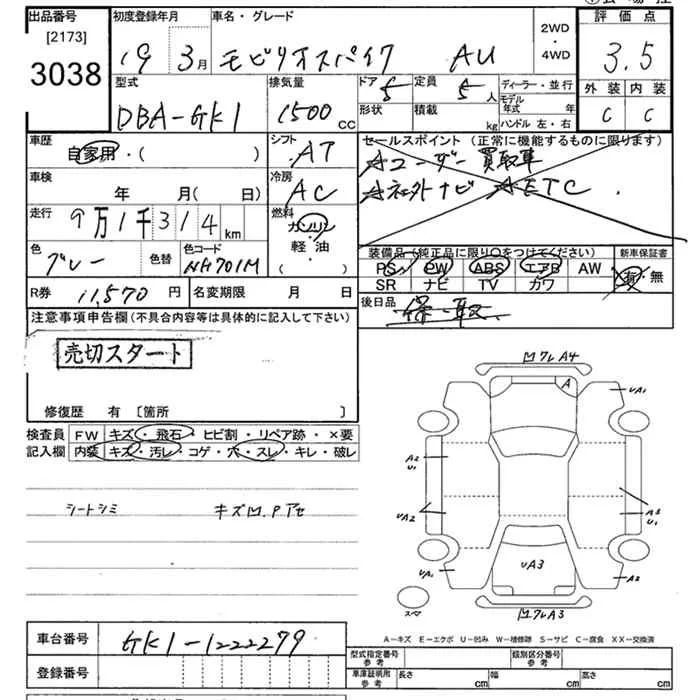 出品番号
[2173]
3038
初度登録年月
19年 3月
車名・グレード
モビリオスパイク AU
2WD
・
4WD
評価点
3.5
型式
DBA-GK1
排気量
1500 cc
ドア 5
定員 5人
形状
積載 kg
ディーラー・並行
モデル年式 年
ハンドル 左・右
外装 内装
C C
車歴
自家用・( )
シフト
AT
セールスポイント (正常に機能するものに限ります)
ユーザー買取車
社外ナビ ETC
車検
年 月( 日)
冷房
AC
走行
9万1千314km
燃料
ガソリン
軽・油
( )
色
グレー
色替
色コード
NH701M
装備品(純正品に限り○をつけてください)
PS PW ABS エアB AW
SR ナビ TV カワ
新車保証書
有・無
R券 11,570円
名変期限 月 日
後日品
保・取
注意事項申告欄(不具合内容等は具体的に記入して下さい)
売切スタート
修復歴 有 [箇所 ]
検査員
記入欄
FW キズ・飛石・ヒビ割・リペア跡・×要
内装 キズ・汚レ・コゲ・穴・スレ・キレ・破レ
シートシミ キズ凹.Pアセ
凹フレA4
A
UA1
A2
U1
UA2
A3
U1
UA3
UA1
A2
スマ
凹フレA3
A−キズ E−エクボ U−凹み W−補修跡 S−サビ C−腐食 XX−交換済
車台番号
GK1-1222279
登録番号
型式指定番号
参考
類別区分番号
参考
車庫証明用
参考
長さ cm 幅 cm 高さ cm